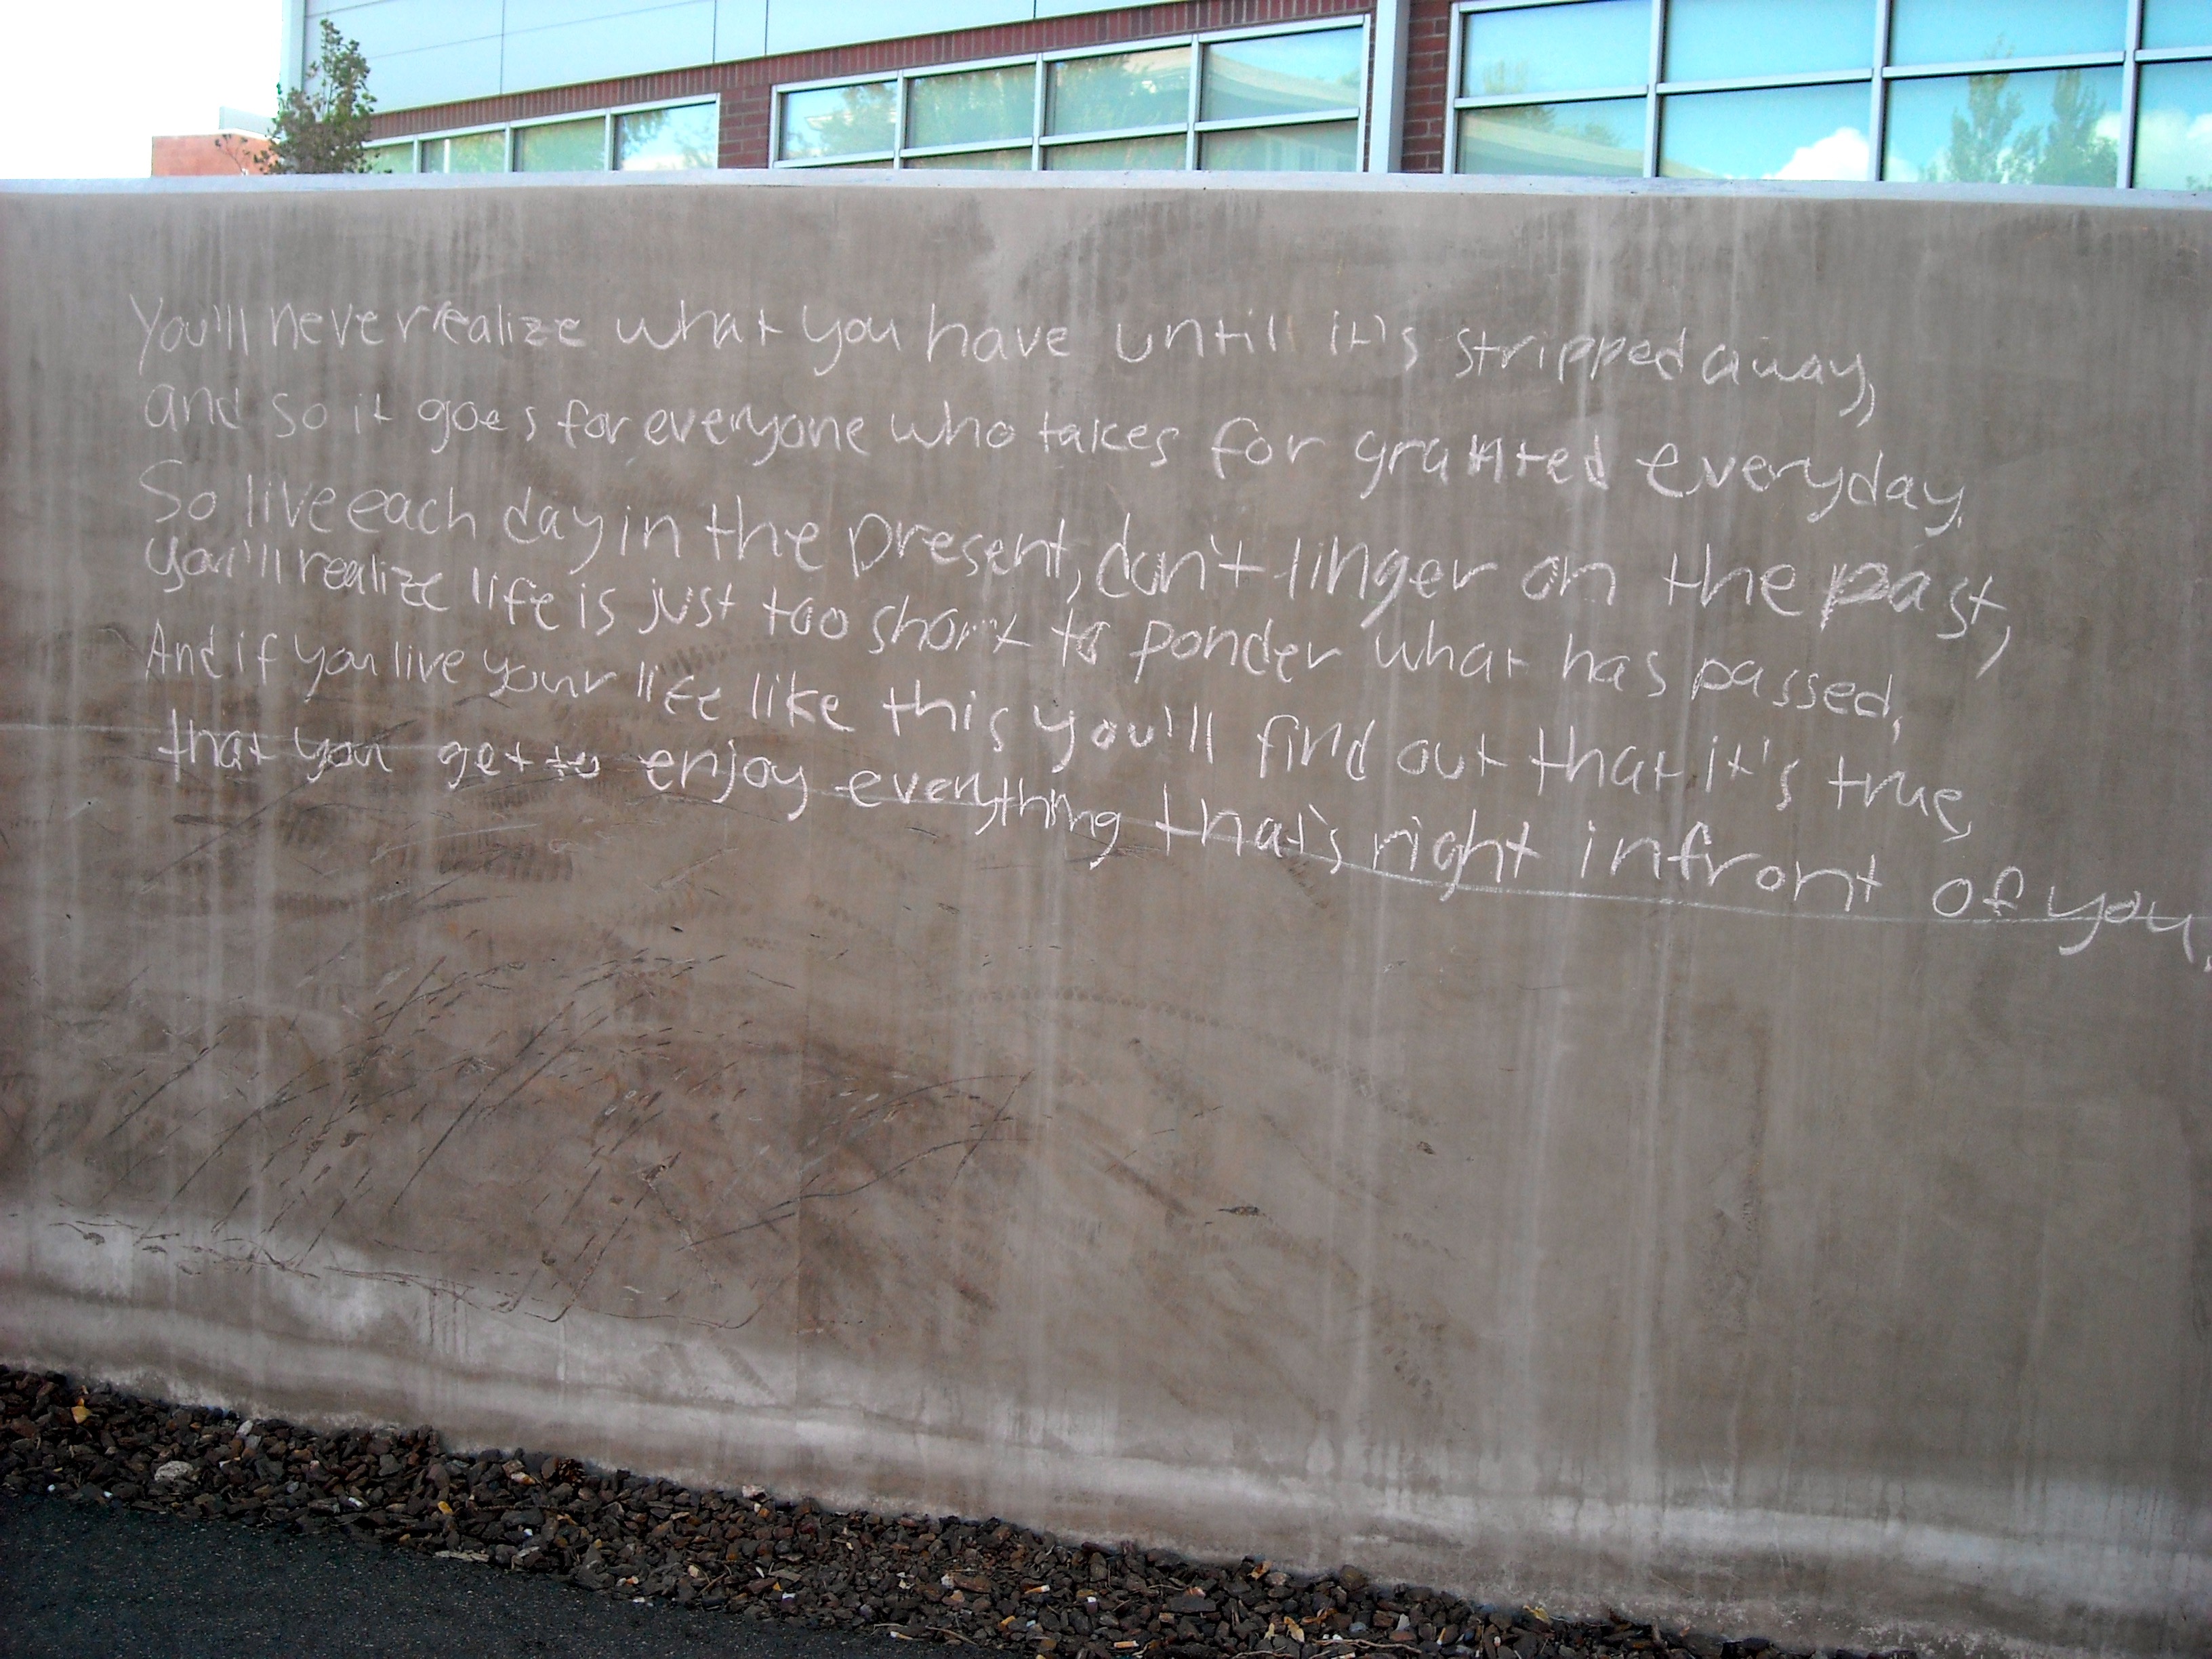 You'll never realize what you have until it's stripped away,
and so it goes for everyone who takes for granted everyday.
So live each day in the present, don't linger on the past,
you'll realize life is just too short to ponder what has passed,
And if you live your life like this you'll find out that it's true,
that you get to enjoy everything that's right infront of you.